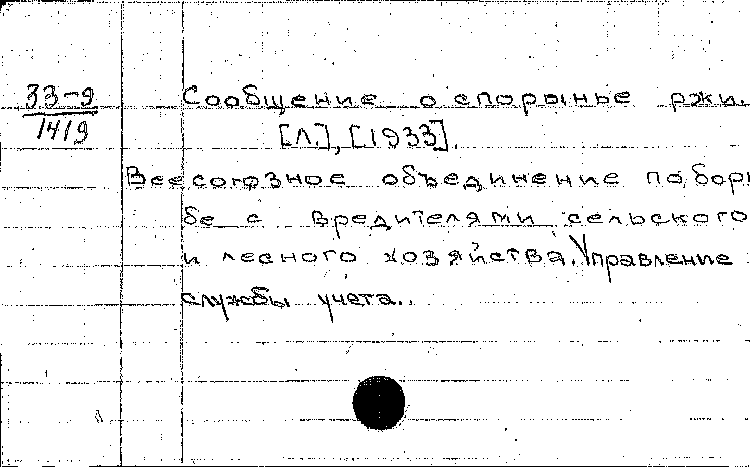 33-9
1419
Сообщение о спорынье ржи.
[Л.], [1933].
Всесоюзное объединение по борь
бе с вредителями сельского
и лесного хозяйства. Управление
службы учета.